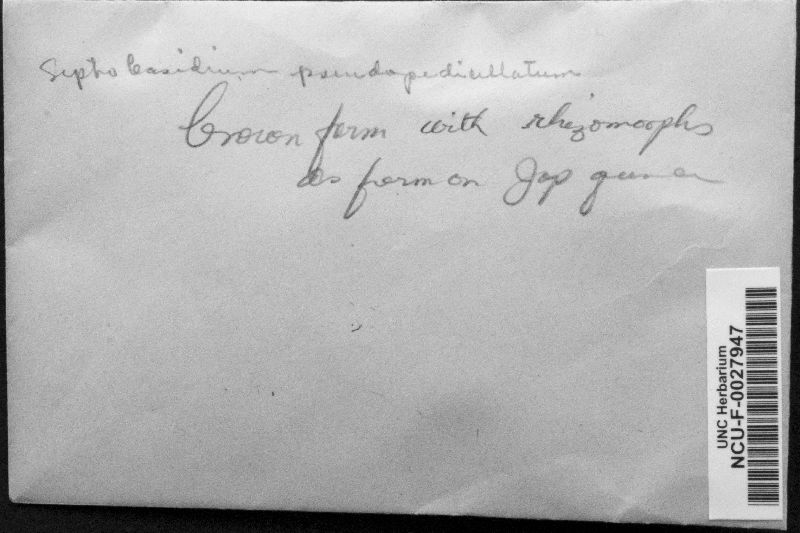 Septobasidium pseudopedicellatum
Brown form with rhizomorphs
as form on Jap
UNC Herbarium
NCU-F-0027947